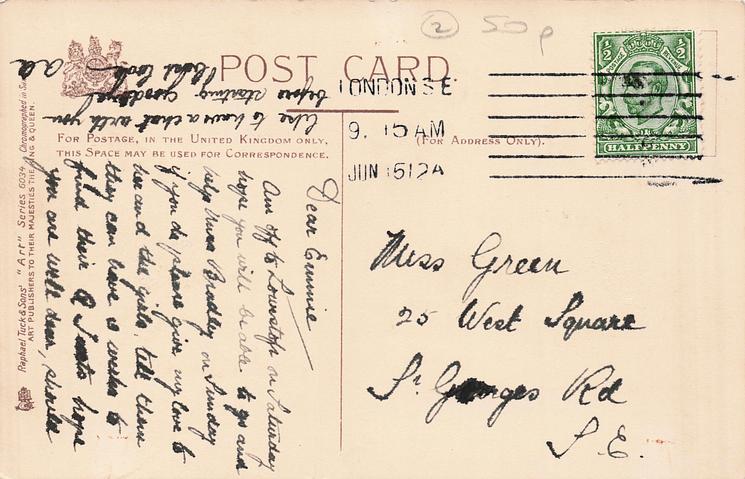 ② 50p
POST CARD
FOR POSTAGE, IN THE UNITED KINGDOM ONLY,
THIS SPACE MAY BE USED FOR CORRESPONDENCE.
(FOR ADDRESS ONLY).
LONDON S.E
9. 15 AM
JUN 15 12A
HALFPENNY
½ ½
Raphael Tuck & Sons' "Art" Series 6034
ART PUBLISHERS TO THEIR MAJESTIES THE KING & QUEEN.
Dear Emmie
Am off to Lowestoft on Saturday
hope you will be able to go and
help Miss Bradley on Sunday
if you do please give my love to
her and the girls, tell them
they can have a wishes to
find their Q Texts hope
you are well dear, should
like to have a chat with you
before starting goodbye
best love
a a
Miss Green
25 West Square
St Georges Rd
S.E.